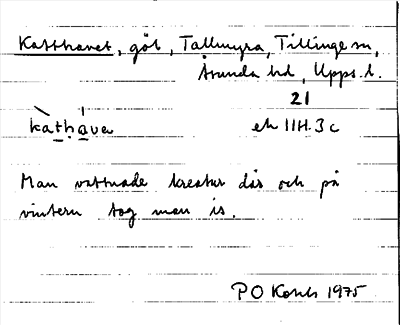 Katthavet, göl, Tallmyra, Tillinge sn,
Åsunda hd, Upps. l.
21
kàthávə ek 11H 3c
Man vattnade kreatur där och på
vintern tog man is.
P O 1975